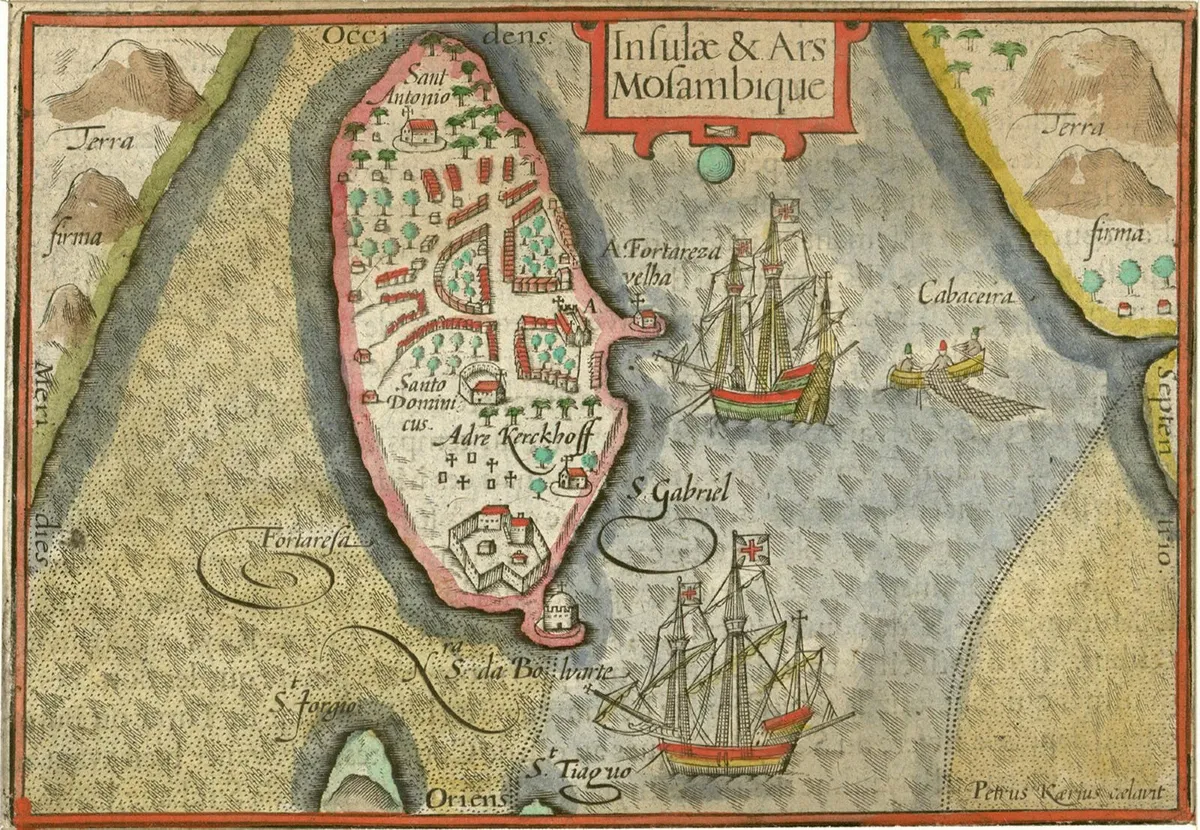 Occidens.
Insulæ & Ars
Mosambique
Sant
Antonio
Terra
firma
Terra
firma
A. Fortareza
velha
Cabaceira
A
Meri
dies
Septen
trio
Santo
Domini
cus.
Adre Kerckhoff
S. Gabriel
Fortaresa
Nra Sra da Bolwarte
St Jorgio
St Tiaguo
Oriens
Petrus Kærius cælavit